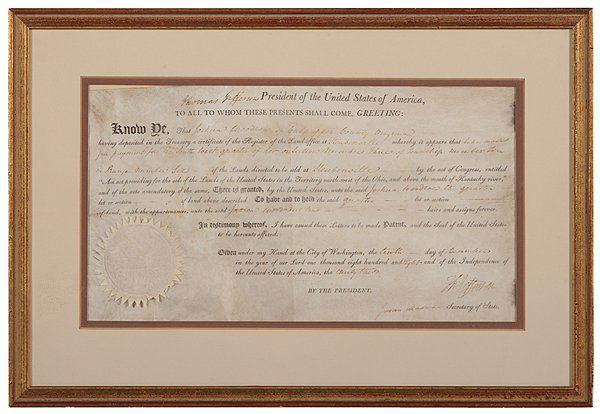 Thomas Jefferson President of the United States of America,
TO ALL TO WHOM THESE PRESENTS SHALL COME, GREETING:
Know Ye, That Joshua County
having deposited in the Treasury a certificate of the Register of the Land-office at Steubenville whereby it appears that he has made
full payment for the quarter of Section Number Three of Township Number ten
in Range Number Six of the Lands directed to be sold at Steubenville by the act of Congress, entitled
"An act providing for the sale of the Lands of the United States in the Territory north-west of the Ohio, and above the mouth of Kentucky river,"
and of the acts amendatory of the same, There is granted, by the United States, unto the said Joshua the quarter
lot or section of land above described: To have and to hold the said quarter lot or section
of land, with the appurtenances, unto the said Joshua his heirs and assigns forever.
In testimony whereof, I have caused these Letters to be made Patent, and the Seal of the United States
to be hereunto affixed.
Given under my Hand at the City of Washington, the tenth day of
in the year of our Lord one thousand eight hundred and eight and of the Independence of
the United States of America, the thirty third
BY THE PRESIDENT,
Th: Jefferson
James Madison Secretary of State.